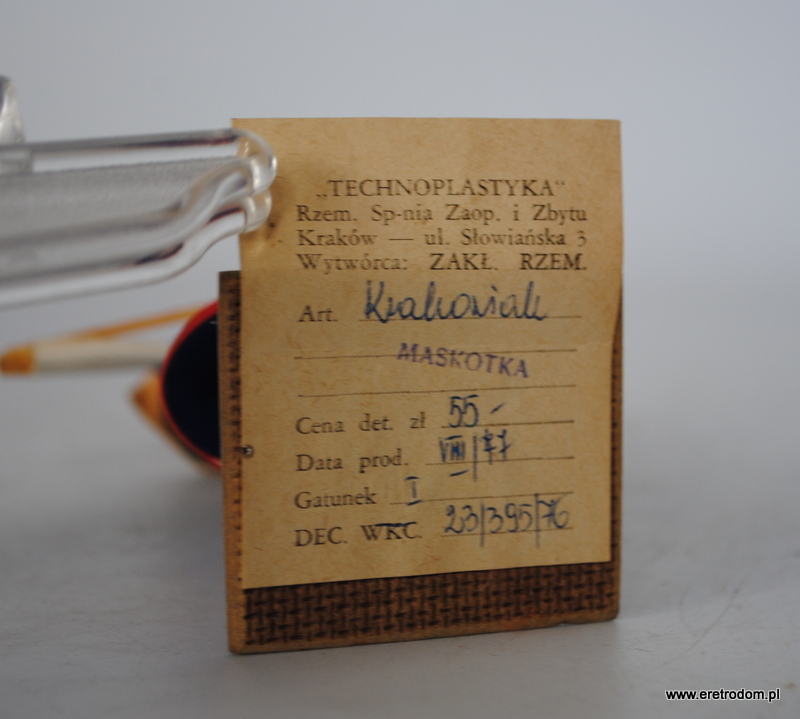 „TECHNOPLASTYKA"
Rzem. Sp-nia Zaop. i Zbytu
Kraków — ul. Słowiańska 3
Wytwórca: ZAKŁ. RZEM.
Art. Krakowiak
MASKOTKA
Cena det. zł 55 -
Data prod. VIII/77
Gatunek I
DEC. WKC. 23/395/76
www.eretrodom.pl